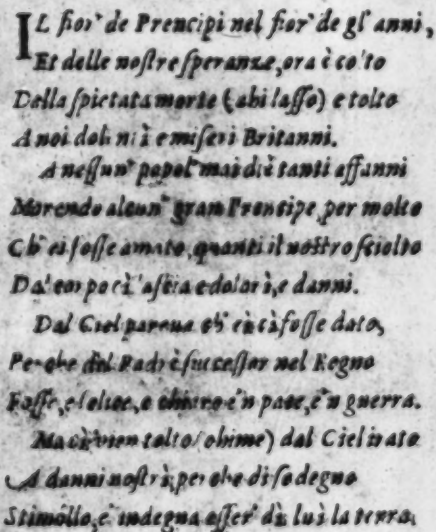 IL fior' de Prencipi nel fior' de gl' anni,
Et delle nostre speranze, ora è co'to
Dalla spietata morte (ahi lasso) e tolto
A noi dolenti è miseri Britanni.
A nessun' popol' mai diè tanti affanni
Morendo alcun' gran Prencipe, per molto
Ch' ei fosse amato, quanti il nostro sciolto
Da'corpo ci lascia e dolori, e danni.
Dal Ciel pareua ch' ei ci fosse dato,
Perche del Padre successor nel Regno
Fosse, e felice, e chiaro e'n pace, e'n guerra.
Ma ci vien tolto (ohime) dal Ciel irato
A danni nostri, per che di sdegno
Stimollo, e indegna esser' di lui la terra.